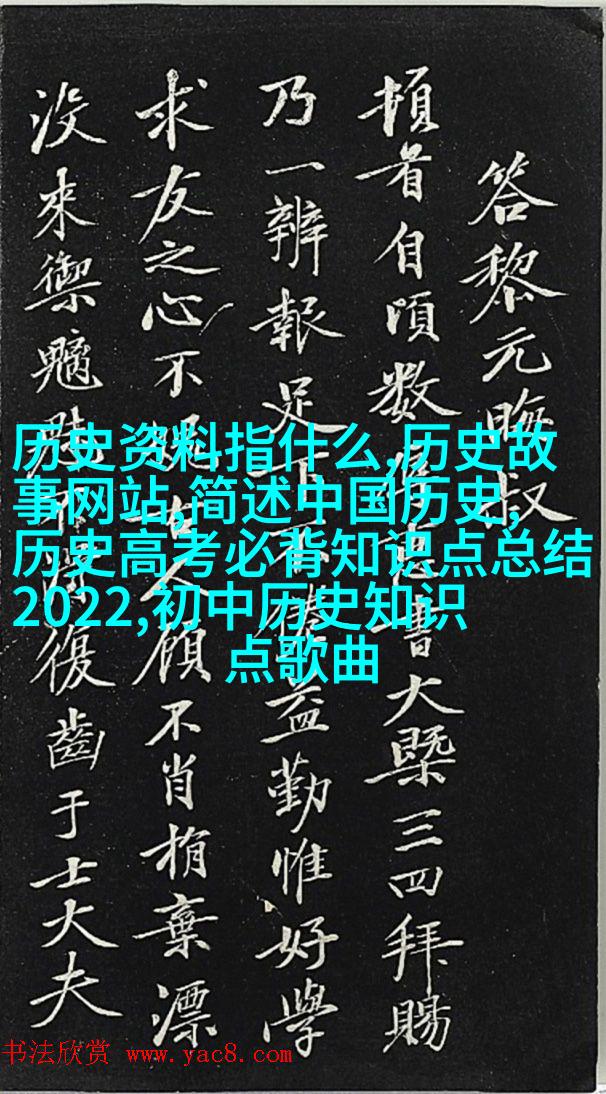 答黎元晦叔
頓首自頃数書大槩三四拜賜
乃一辨報足下不益勤惟好學
求友之心不古人顧不肖捐棄漂
没來禦魑魅復齒于士大夫
历史资料指什么,历史故
事网站,简述中国历史,
历史高考必背知识点总结
2022,初中历史知识
点歌曲
书法欣赏 www.yac8.com